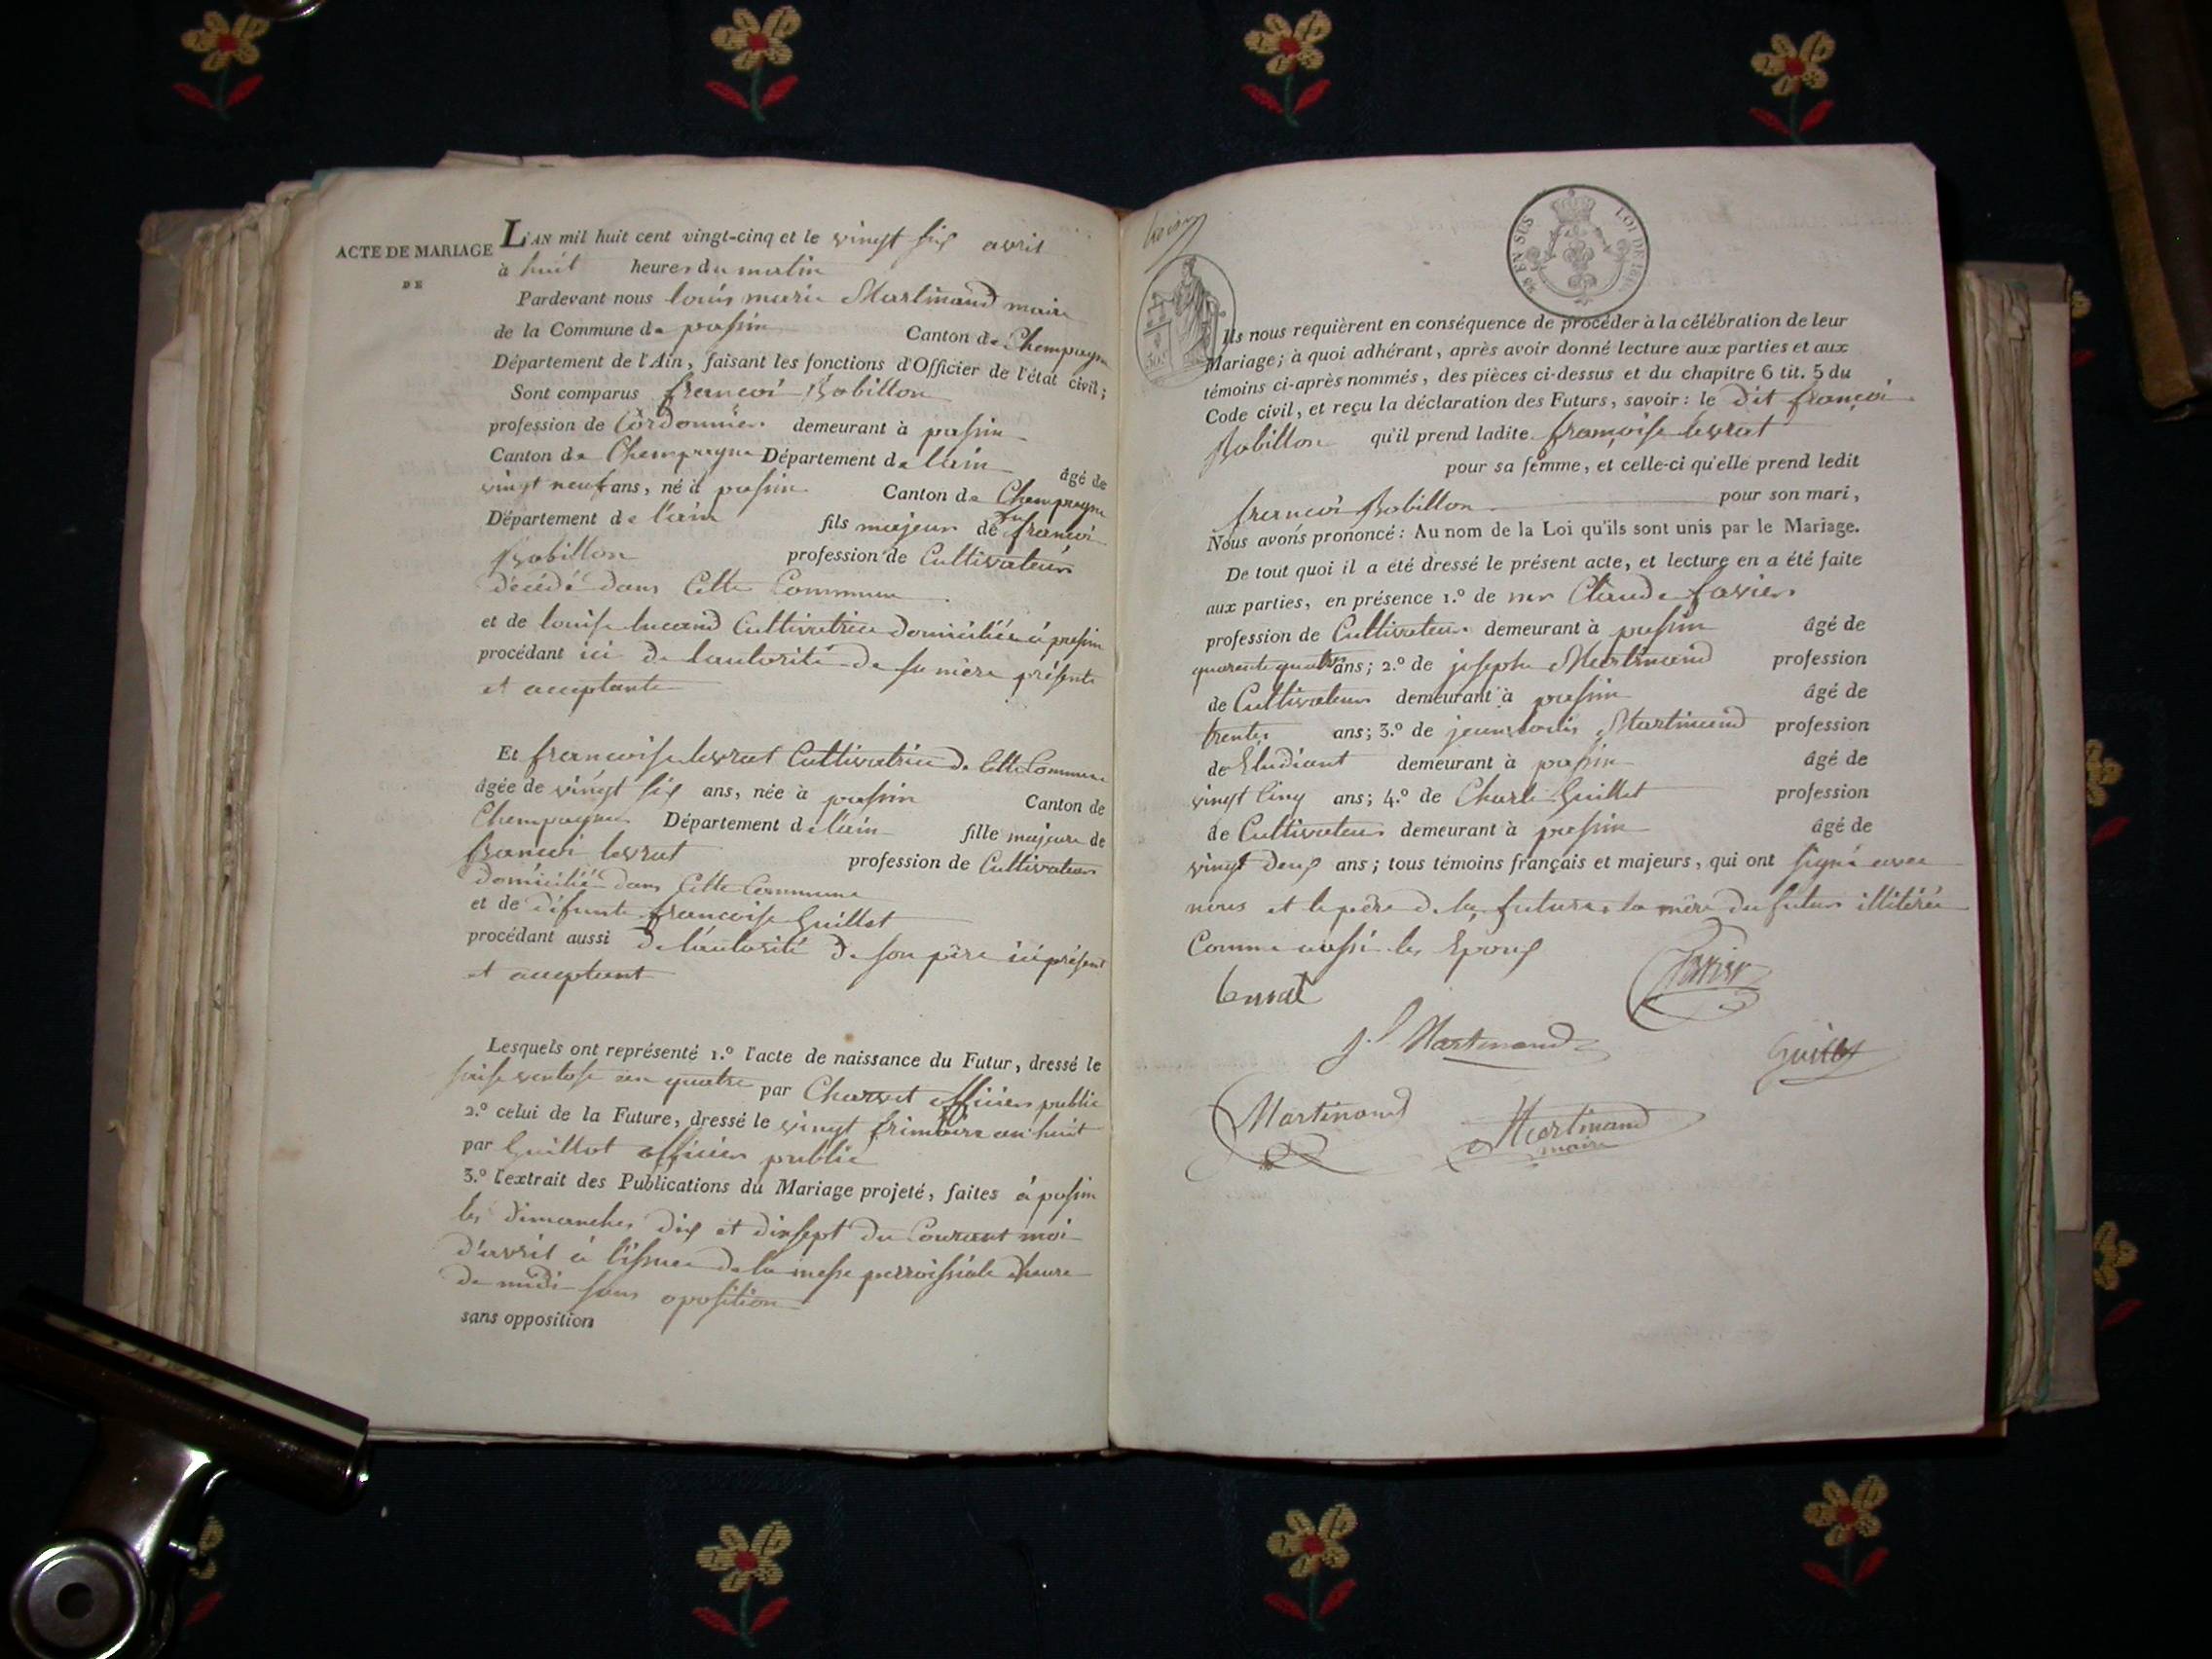 ACTE DE MARIAGE
DE
L'AN mil huit cent vingt-cinq et le vingt six avril
à huit heures du matin
Pardevant nous louis marie Martinand maire
de la Commune de passin Canton de Champagne
Département de l'Ain, faisant les fonctions d'Officier de l'état civil;
Sont comparus francoi Bobillon
profession de Cordonnier demeurant à passin
Canton de Champagne Département de lain âgé de
vingt neuf ans, né à passin Canton de Champagne
Département de lain fils majeur de feu francoi
Bobillon profession de Cultivateur
décédé dans Cette Commune
et de louise lucand Cultivatrice domiciliée à passin
procédant ici de lautorité de sa mère présente
et acceptante
Et francoise levrat Cultivatrice de Cette Commune
âgée de vingt six ans, née à passin Canton de
Champagne Département de lain fille majeure de
francoi levrat profession de Cultivateur
domicilié dans Cette Commune
et de défunte francoise Guillot
procédant aussi de lautorité de son père ici présent
et acceptant
Lesquels ont représenté 1.º l'acte de naissance du Futur, dressé le
seise ventose an quatre par Charvet officier public
2.º celui de la Future, dressé le vingt frimaire an huit
par Guillot officier public
3.º l'extrait des Publications du Mariage projeté, faites à passin
les dimanches dix et dixsept du Courant moi
d'avril à l'issue de la messe parroissiale heure
de midi sans oposition
sans opposition
EN SUS LOI DE
Ils nous requièrent en conséquence de procéder à la célébration de leur
Mariage; à quoi adhérant, après avoir donné lecture aux parties et aux
témoins ci-après nommés, des pièces ci-dessus et du chapitre 6 tit. 5 du
Code civil, et reçu la déclaration des Futurs, savoir: le dit françoi
Bobillon qu'il prend ladite françoise levrat
pour sa femme, et celle-ci qu'elle prend ledit
francoi Bobillon pour son mari,
Nous avons prononcé: Au nom de la Loi qu'ils sont unis par le Mariage.
De tout quoi il a été dressé le présent acte, et lecture en a été faite
aux parties, en présence 1.º de Claude favier
profession de Cultivateur demeurant à passin âgé de
quarante quatre ans; 2.º de joseph Martinand profession
de Cultivateur demeurant à passin âgé de
trente ans; 3.º de jean louis Martinand profession
de Etudiant demeurant à passin âgé de
vingt Cinq ans; 4.º de Charle Guillot profession
de Cultivateur demeurant à passin âgé de
vingt deux ans; tous témoins français et majeurs, qui ont signé avec
nous et le père de la future la mère du futur illitérée
Comme aussi les Epoux
levrat
favier
J. Martinand
Guillot
Martinand
Martinand
maire